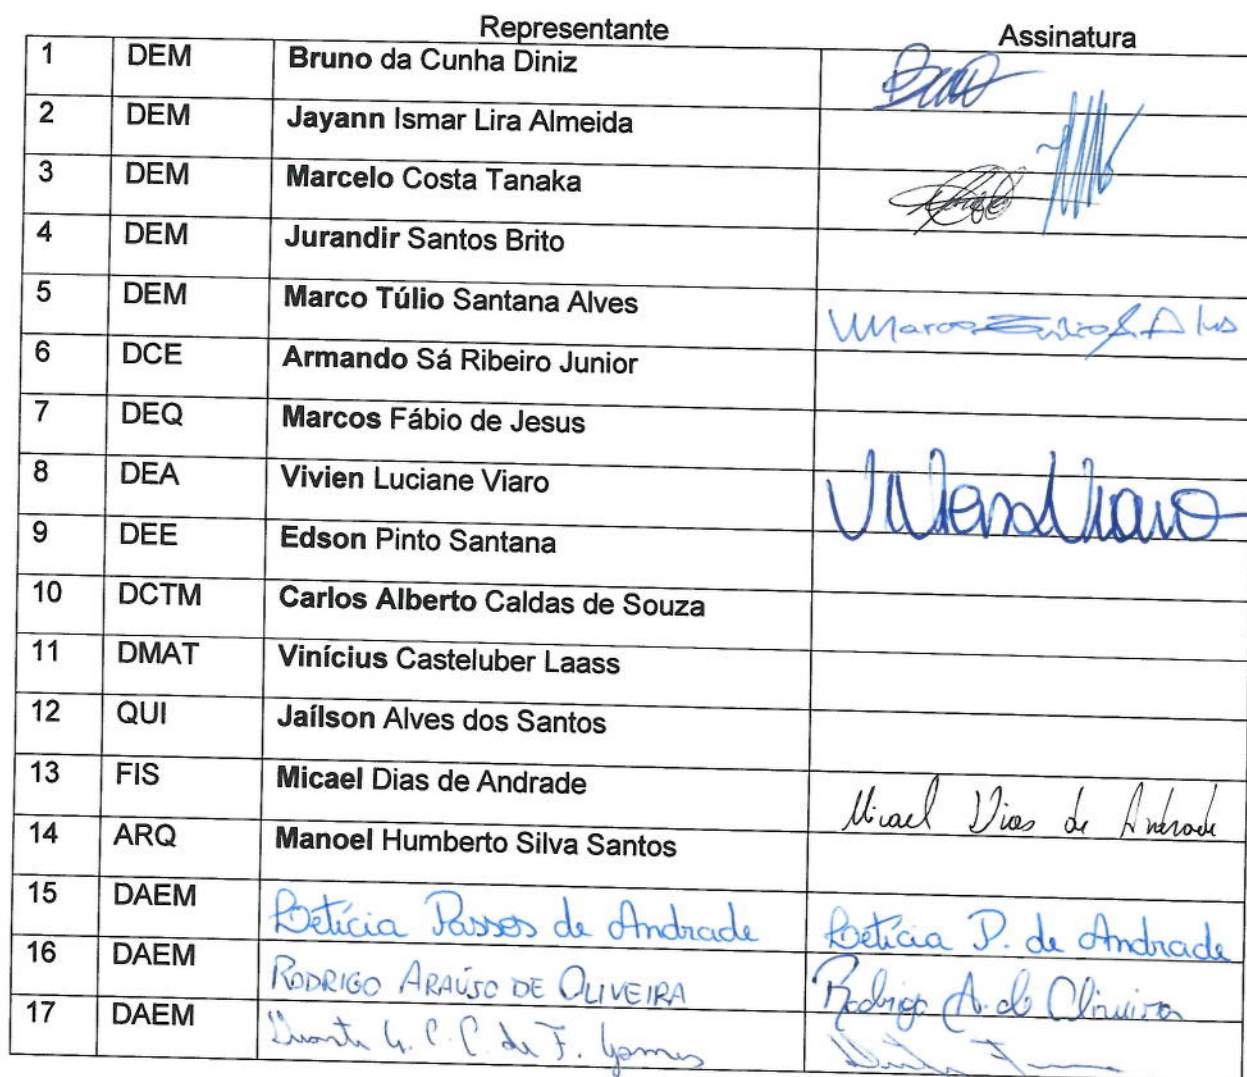 Representante Assinatura
1 DEM Bruno da Cunha Diniz
2 DEM Jayann Ismar Lira Almeida
3 DEM Marcelo Costa Tanaka
4 DEM Jurandir Santos Brito
5 DEM Marco Túlio Santana Alves Marco Túlio S. Alves
6 DCE Armando Sá Ribeiro Junior
7 DEQ Marcos Fábio de Jesus
8 DEA Vivien Luciane Viaro Vivien Viaro
9 DEE Edson Pinto Santana
10 DCTM Carlos Alberto Caldas de Souza
11 DMAT Vinícius Casteluber Laass
12 QUI Jaílson Alves dos Santos
13 FIS Micael Dias de Andrade Micael Dias de Andrade
14 ARQ Manoel Humberto Silva Santos
15 DAEM Letícia Passos de Andrade Letícia P. de Andrade
16 DAEM RODRIGO ARAÚJO DE OLIVEIRA Rodrigo A. de Oliveira
17 DAEM Duarte G. C. C. de F. Gomes